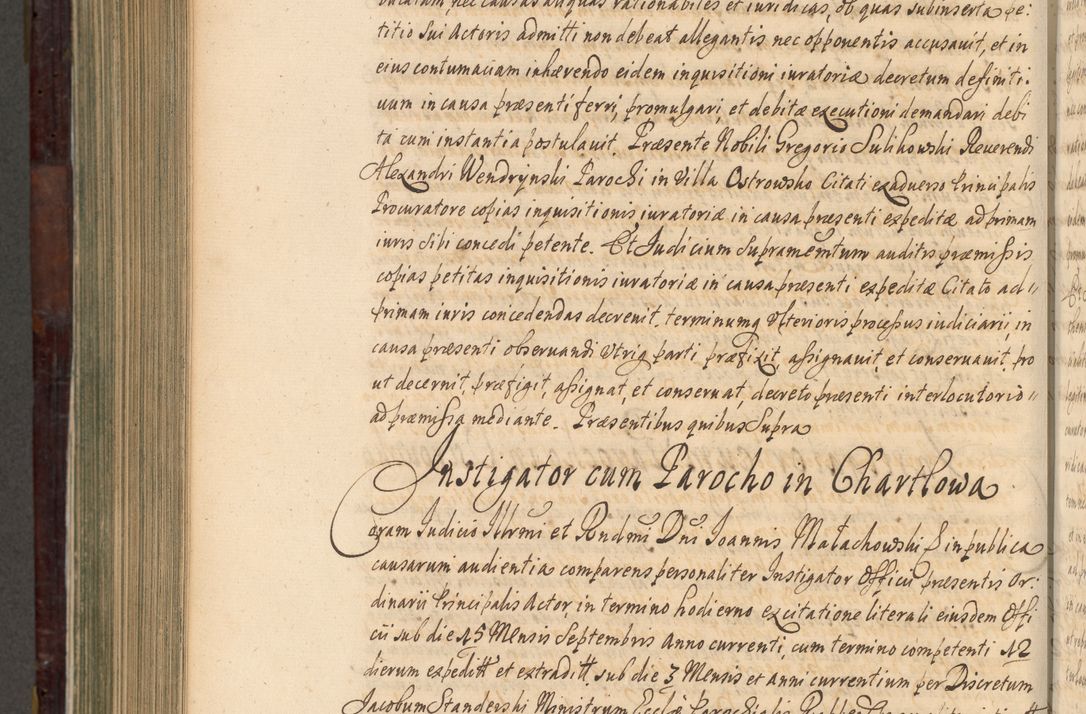 nec causas aliquas rationabiles et iuridicas, ob quas subinserta pe:
titio sui Actoris admitti non debeat allegantis nec opponentis accusauit, et in
eius contumaciam inhærendo eidem inquisitioni iuratoriæ decretum definiti:
uum in causa præsenti ferri, promulgari, et debitæ executioni demandari debi
ta cum instantia postulauit. Præsente Nobili Gregorio Sulikowski Reuerendi
Alexandri Wendrynski Parochi in Villa Ostrowsko Citati exaduerso Principalis
Procuratore copias inquisitionis iuratoriæ in causa præsenti expeditæ ad primam
iuris sibi concedi petente. Et Judicium supramemtum auditis præmissis
copias petitas inquisitionis iuratoriæ in causa præsenti expeditæ Citato ad"
primam iuris concedendas decreuit, terminumq Vlterioris processus iudiciarii, in
causa præsenti obseruandi Vtriq parti præfixit, assignauit, et conseruauit, pro
ut decernit, præfigit, assignat, et conseruat, decreto præsenti interlocutorio"
ad præmissa mediante. Præsentibus quibus Supra
Instigator cum Parocho in Chartlowa
Coram Judicio Illrmi et Rndmi Dni Joannis Małachowski E in publica
causarum audientia comparens personaliter Instigator Officii præsentis Or:
dinarii Principalis Actor, in termino hodierno ex citatione literali eiusdem Offi
cii sub die 15 Mensis Septembris Anno currenti, cum termino competenti 12
dierum expeditt et extraditt sub die 3 Mensis et anni currentium per Discretum
Jacobum Standerski Ministrum Ecclæ Parochialis